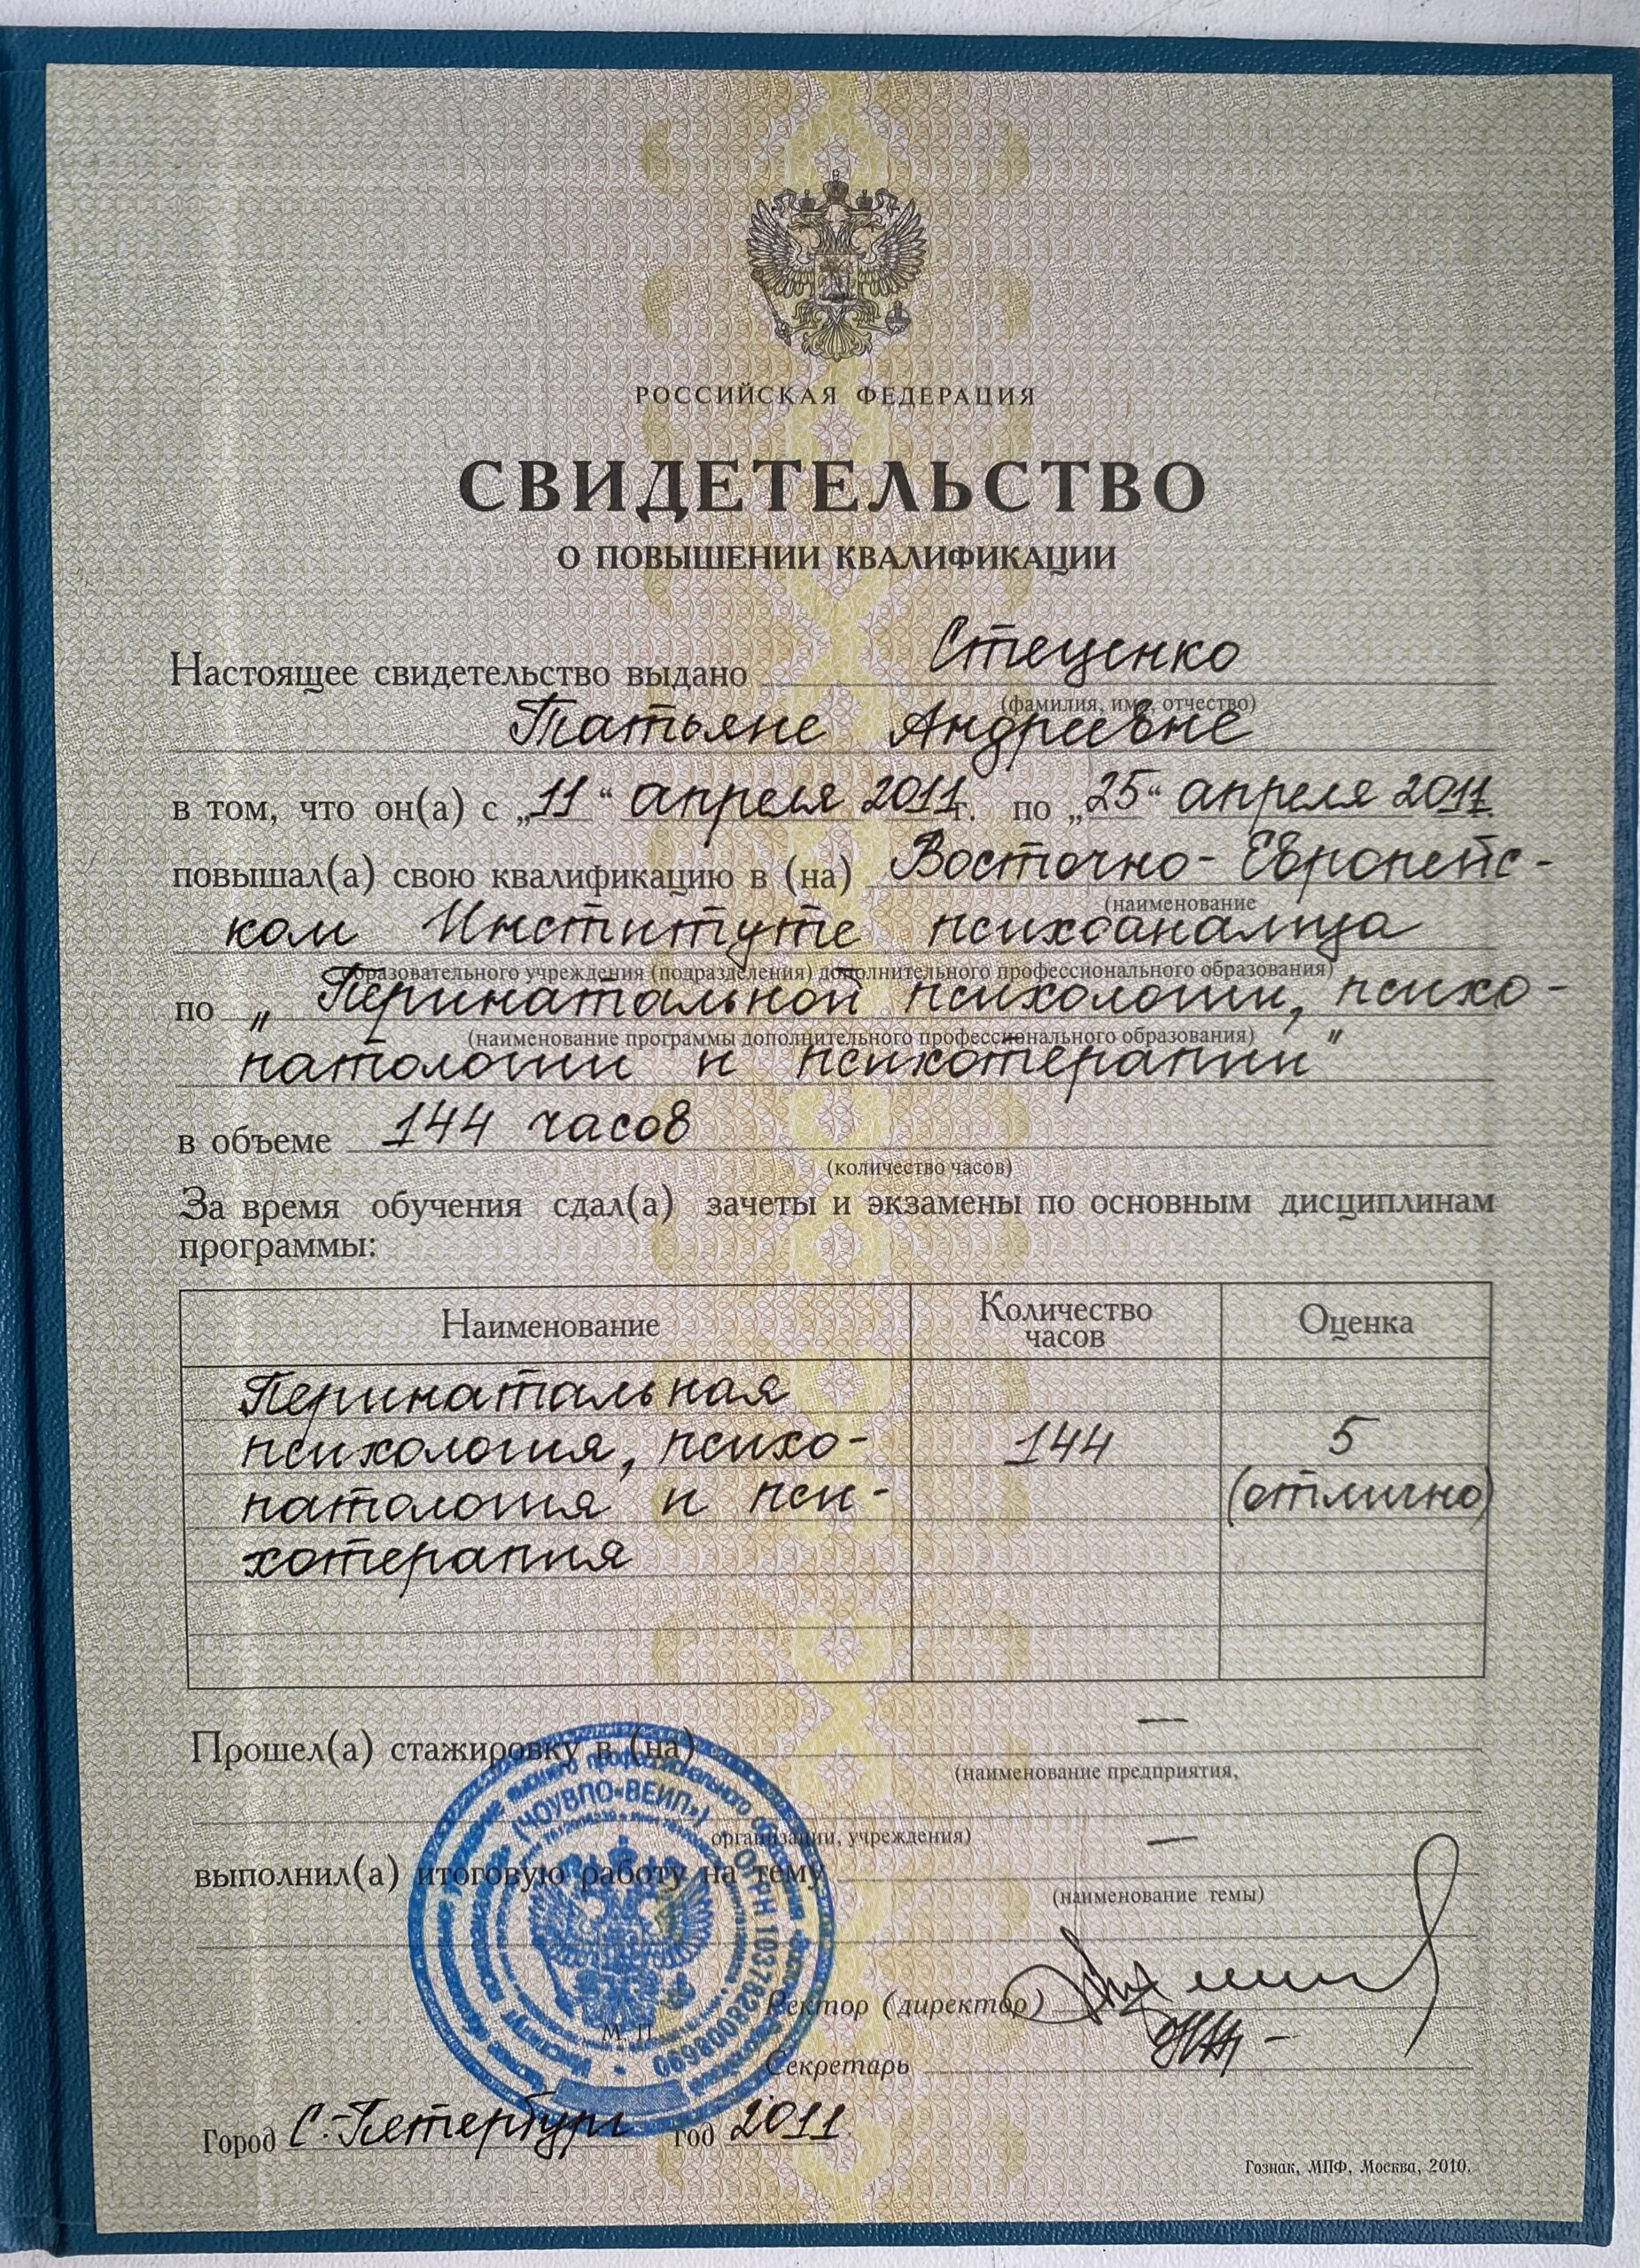 РОССИЙСКАЯ ФЕДЕРАЦИЯ
СВИДЕТЕЛЬСТВО
О ПОВЫШЕНИИ КВАЛИФИКАЦИИ
Настоящее свидетельство выдано Стеценко
(фамилия, имя, отчество)
Татьяне Андреевне
в том, что он(а) с „11“ апреля 2011 г. по „25“ апреля 2011 г.
повышал(а) свою квалификацию в (на) Восточно-Европейс-
(наименование
ком Институте психоанализа
образовательного учреждения (подразделения) дополнительного профессионального образования)
по „Перинатальной психологии, психо-
(наименование программы дополнительного профессионального образования)
патологии и психотерапии"
в объеме 144 часов
(количество часов)
За время обучения сдал(а) зачеты и экзамены по основным дисциплинам
программы:
Наименование Количество часов Оценка
Перинатальная
психология, психо- 144 5
патология и пси- (отлично)
хотерапия
Прошел(а) стажировку в (на) —
(наименование предприятия,
организации, учреждения)
выполнил(а) итоговую работу на тему —
(наименование темы)
(ЧОУВПО«ВЕИП»)
ОГРН 1037828008690
Ректор (директор)
М. П.
Секретарь
Город С.-Петербург год 2011
Гознак, МПФ, Москва, 2010.